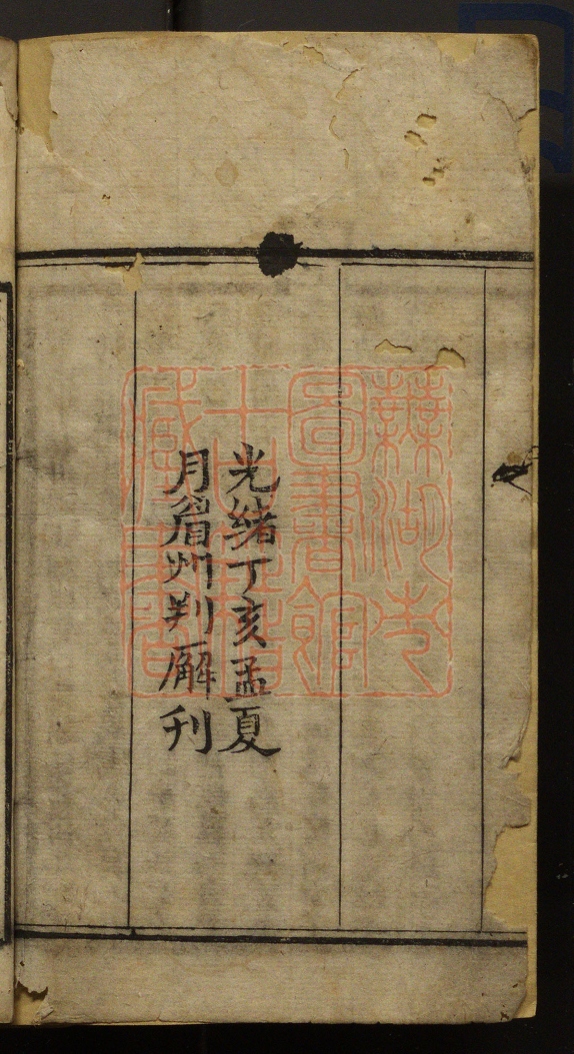 光緒丁亥孟夏
月眉州判廨刊
蕪湖市
圖書館
古籍
藏書